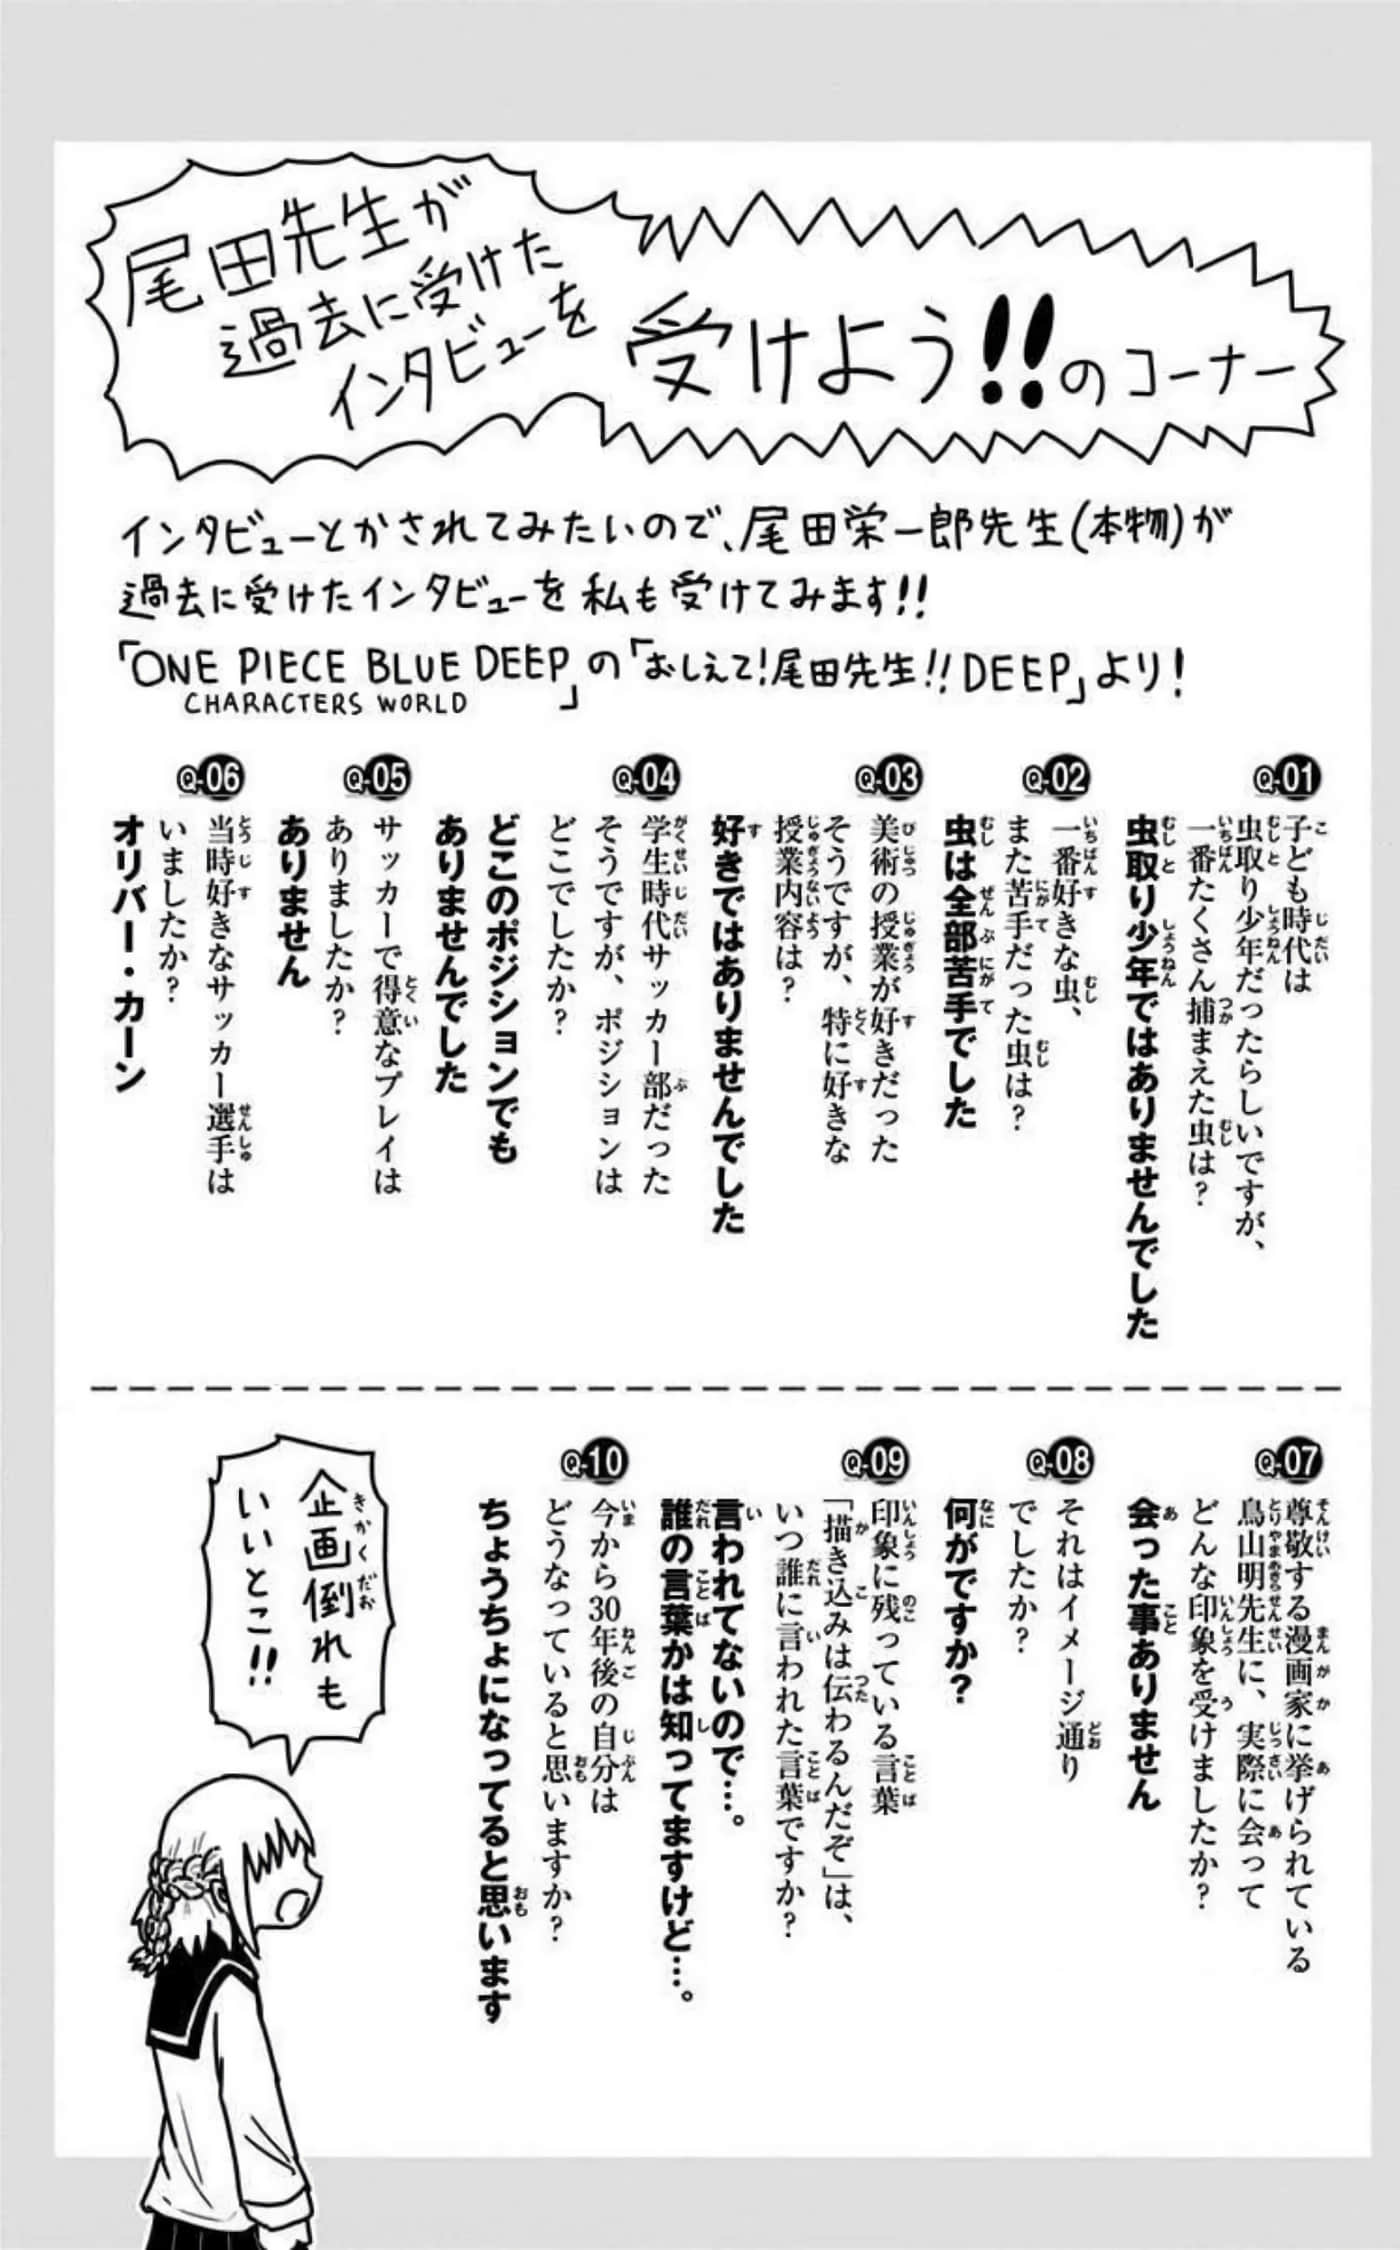 尾田先生が
過去に受けた
インタビューを
受けよう!!のコーナー
インタビューとかされてみたいので、尾田栄一郎先生(本物)が
過去に受けたインタビューを私も受けてみます!!
「ONE PIECE BLUE DEEP
CHARACTERS WORLD」の「おしえて!尾田先生!! DEEP」より!
Q-01
子ども時代は
虫取り少年だったらしいですが、
一番たくさん捕まえた虫は?
虫取り少年ではありませんでした
Q-02
一番好きな虫、
また苦手だった虫は?
虫は全部苦手でした
Q-03
美術の授業が好きだった
そうですが、特に好きな
授業内容は?
好きではありませんでした
Q-04
学生時代サッカー部だった
そうですが、ポジションは
どこでしたか?
どこのポジションでも
ありませんでした
Q-05
サッカーで得意なプレイは
ありましたか?
ありません
Q-06
当時好きなサッカー選手は
いましたか?
オリバー・カーン
Q-07
尊敬する漫画家に挙げられている
鳥山明先生に、実際に会って
どんな印象を受けましたか?
会った事ありません
Q-08
それはイメージ通り
でしたか?
何がですか?
Q-09
印象に残っている言葉
「描き込みは伝わるんだぞ」は、
いつ誰に言われた言葉ですか?
言われてないので…。
誰の言葉かは知ってますけど…。
Q-10
今から30年後の自分は
どうなっていると思いますか?
ちょうちょになってると思います
企画倒れも
いいとこ!!